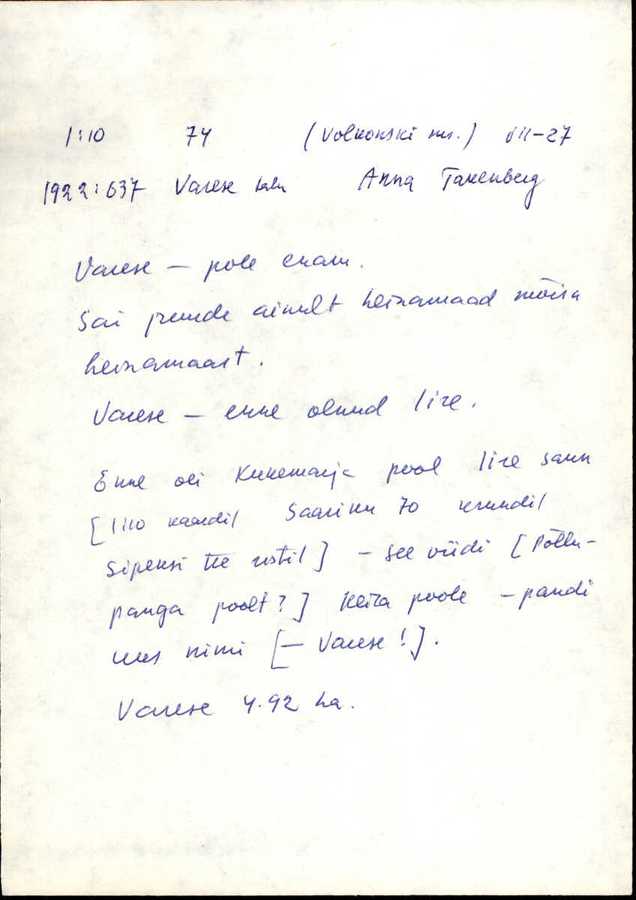 1:10 74 (Volkonski ms.) VII-27
1922:637 Varese talu Anna Takenberg
Varese — pole enam.
Sai juurde ainult heinamaad mõisa
heinamaast.
Varese — enne olnud lire.
Enne oli Kukemarja pool lire saun
[1:10 kaardil Saariku 70 krundil
Sipeksi tee ristil] — see viidi [Põllu-
panga poolt?] Keila poole — pandi
uus nimi [— Varese!].
Varese 4.92 ha.